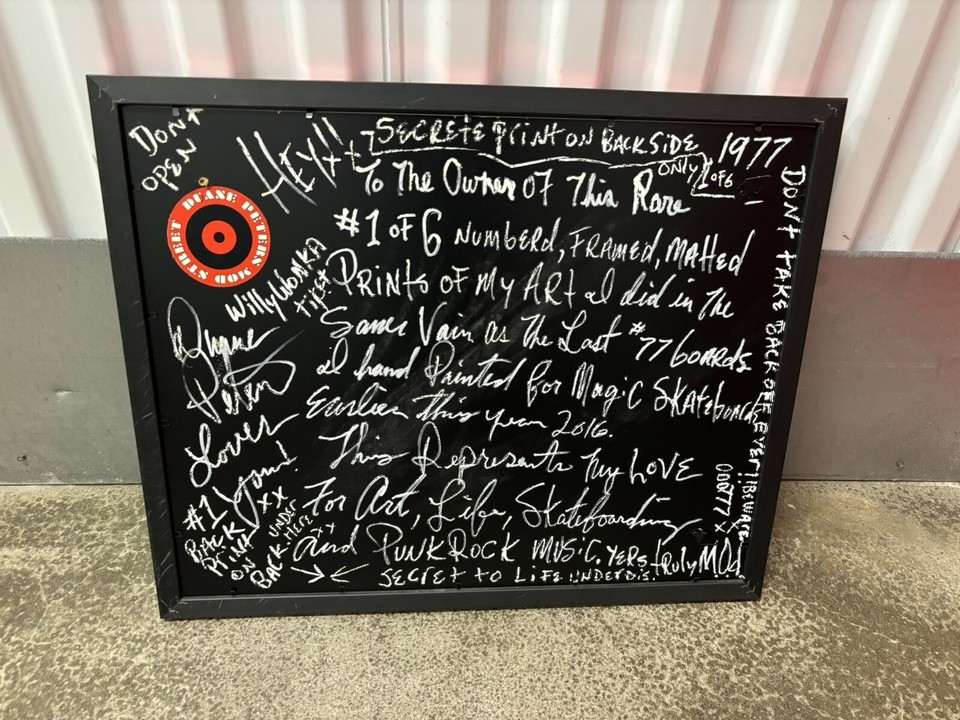 DON'T
OPEN
HEY!!
SECRETE PRINT ON BACKSIDE
1977
ONLY 1 OF 6
To The Owner Of This Rare
#1 OF 6 NUMBERD, FRAMED, MATTED
PRINTS OF MY ART I did in the
Same Vain as The Last #77 boards
I hand Painted for Magic SKAteboards
Earlier this year 2016.
This Represents my LOVE
For Art, Life, Skateboarding
And PUNK ROCK MUSIC. YERS truly MOd
SECRET to LIFE UNDER
DUANE PETERS MOD STREET
WillyWONKA
tipst
Duane
Peters
Loves
you!
XX
#1
BACK
PRINT
ON
BACK
UNDER
HERE
DON'T TAKE BACK OFF EVER!! BEWARE
00077 X